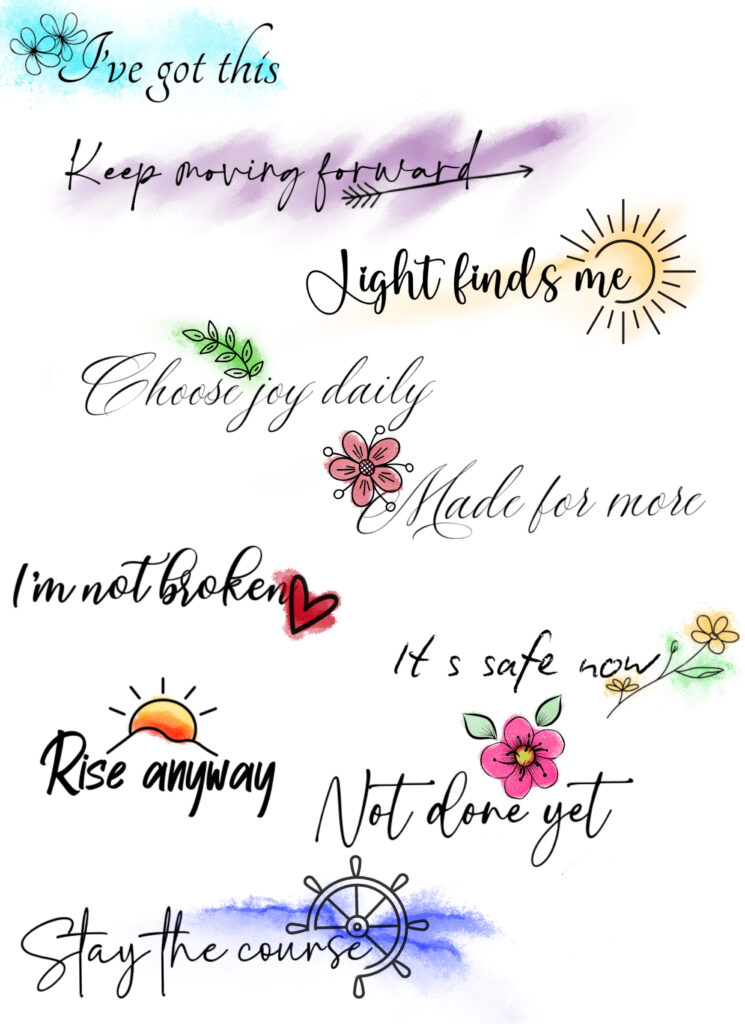 I've got this
Keep moving forward
Light finds me
Choose joy daily
Made for more
I'm not broken
It s safe now
Rise anyway
Not done yet
Stay the course